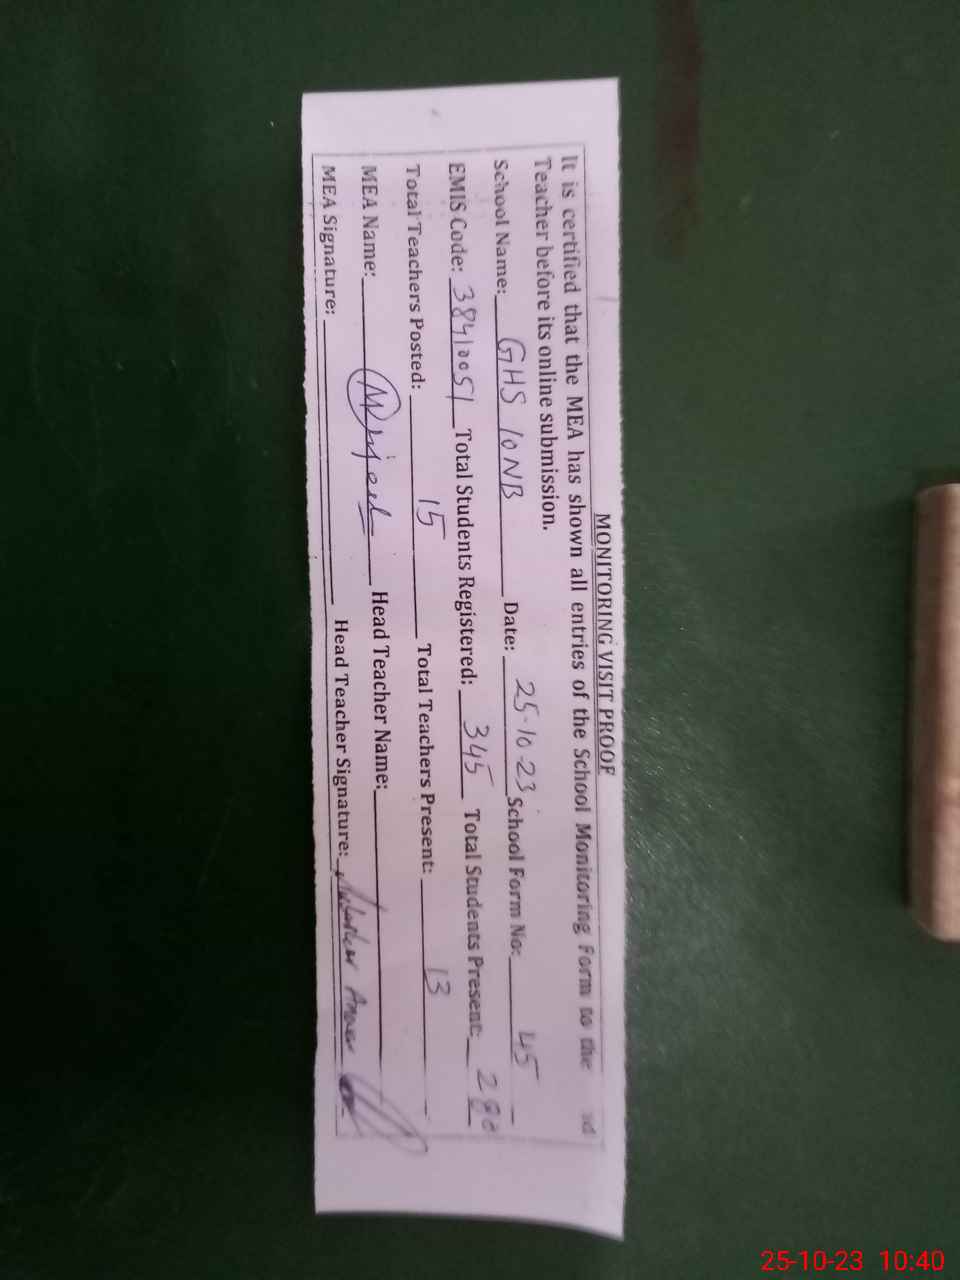 MONITORING VISIT PROOF
It is certified that the MEA has shown all entries of the School Monitoring Form to the
Teacher before its online submission.
School Name: GHS 10NB Date: 25-10-23 School Form No: 45
EMIS Code: 38410051 Total Students Registered: 345 Total Students Present:
Total Teachers Posted: 15 Total Teachers Present: 13
MEA Name: Head Teacher Name:
MEA Signature: Head Teacher Signature:
25-10-23 10:40